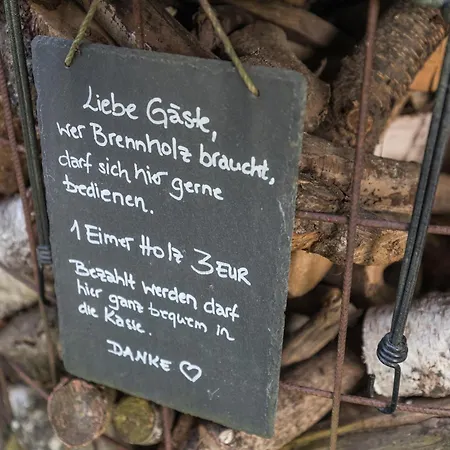 Liebe Gäste,
wer Brennholz braucht,
darf sich hier gerne
bedienen.
1 Eimer Holz 3 EUR
Bezahlt werden darf
hier ganz bequem in
die Kasse.
DANKE ♡